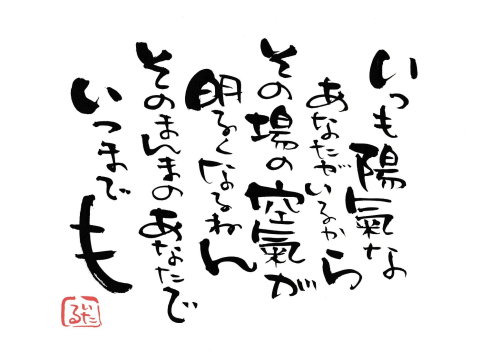 いつも陽氣な
あなたがいるから
その場の空氣が
明るくなるねん
そのまんまのあなたで
いつまでも
いたる